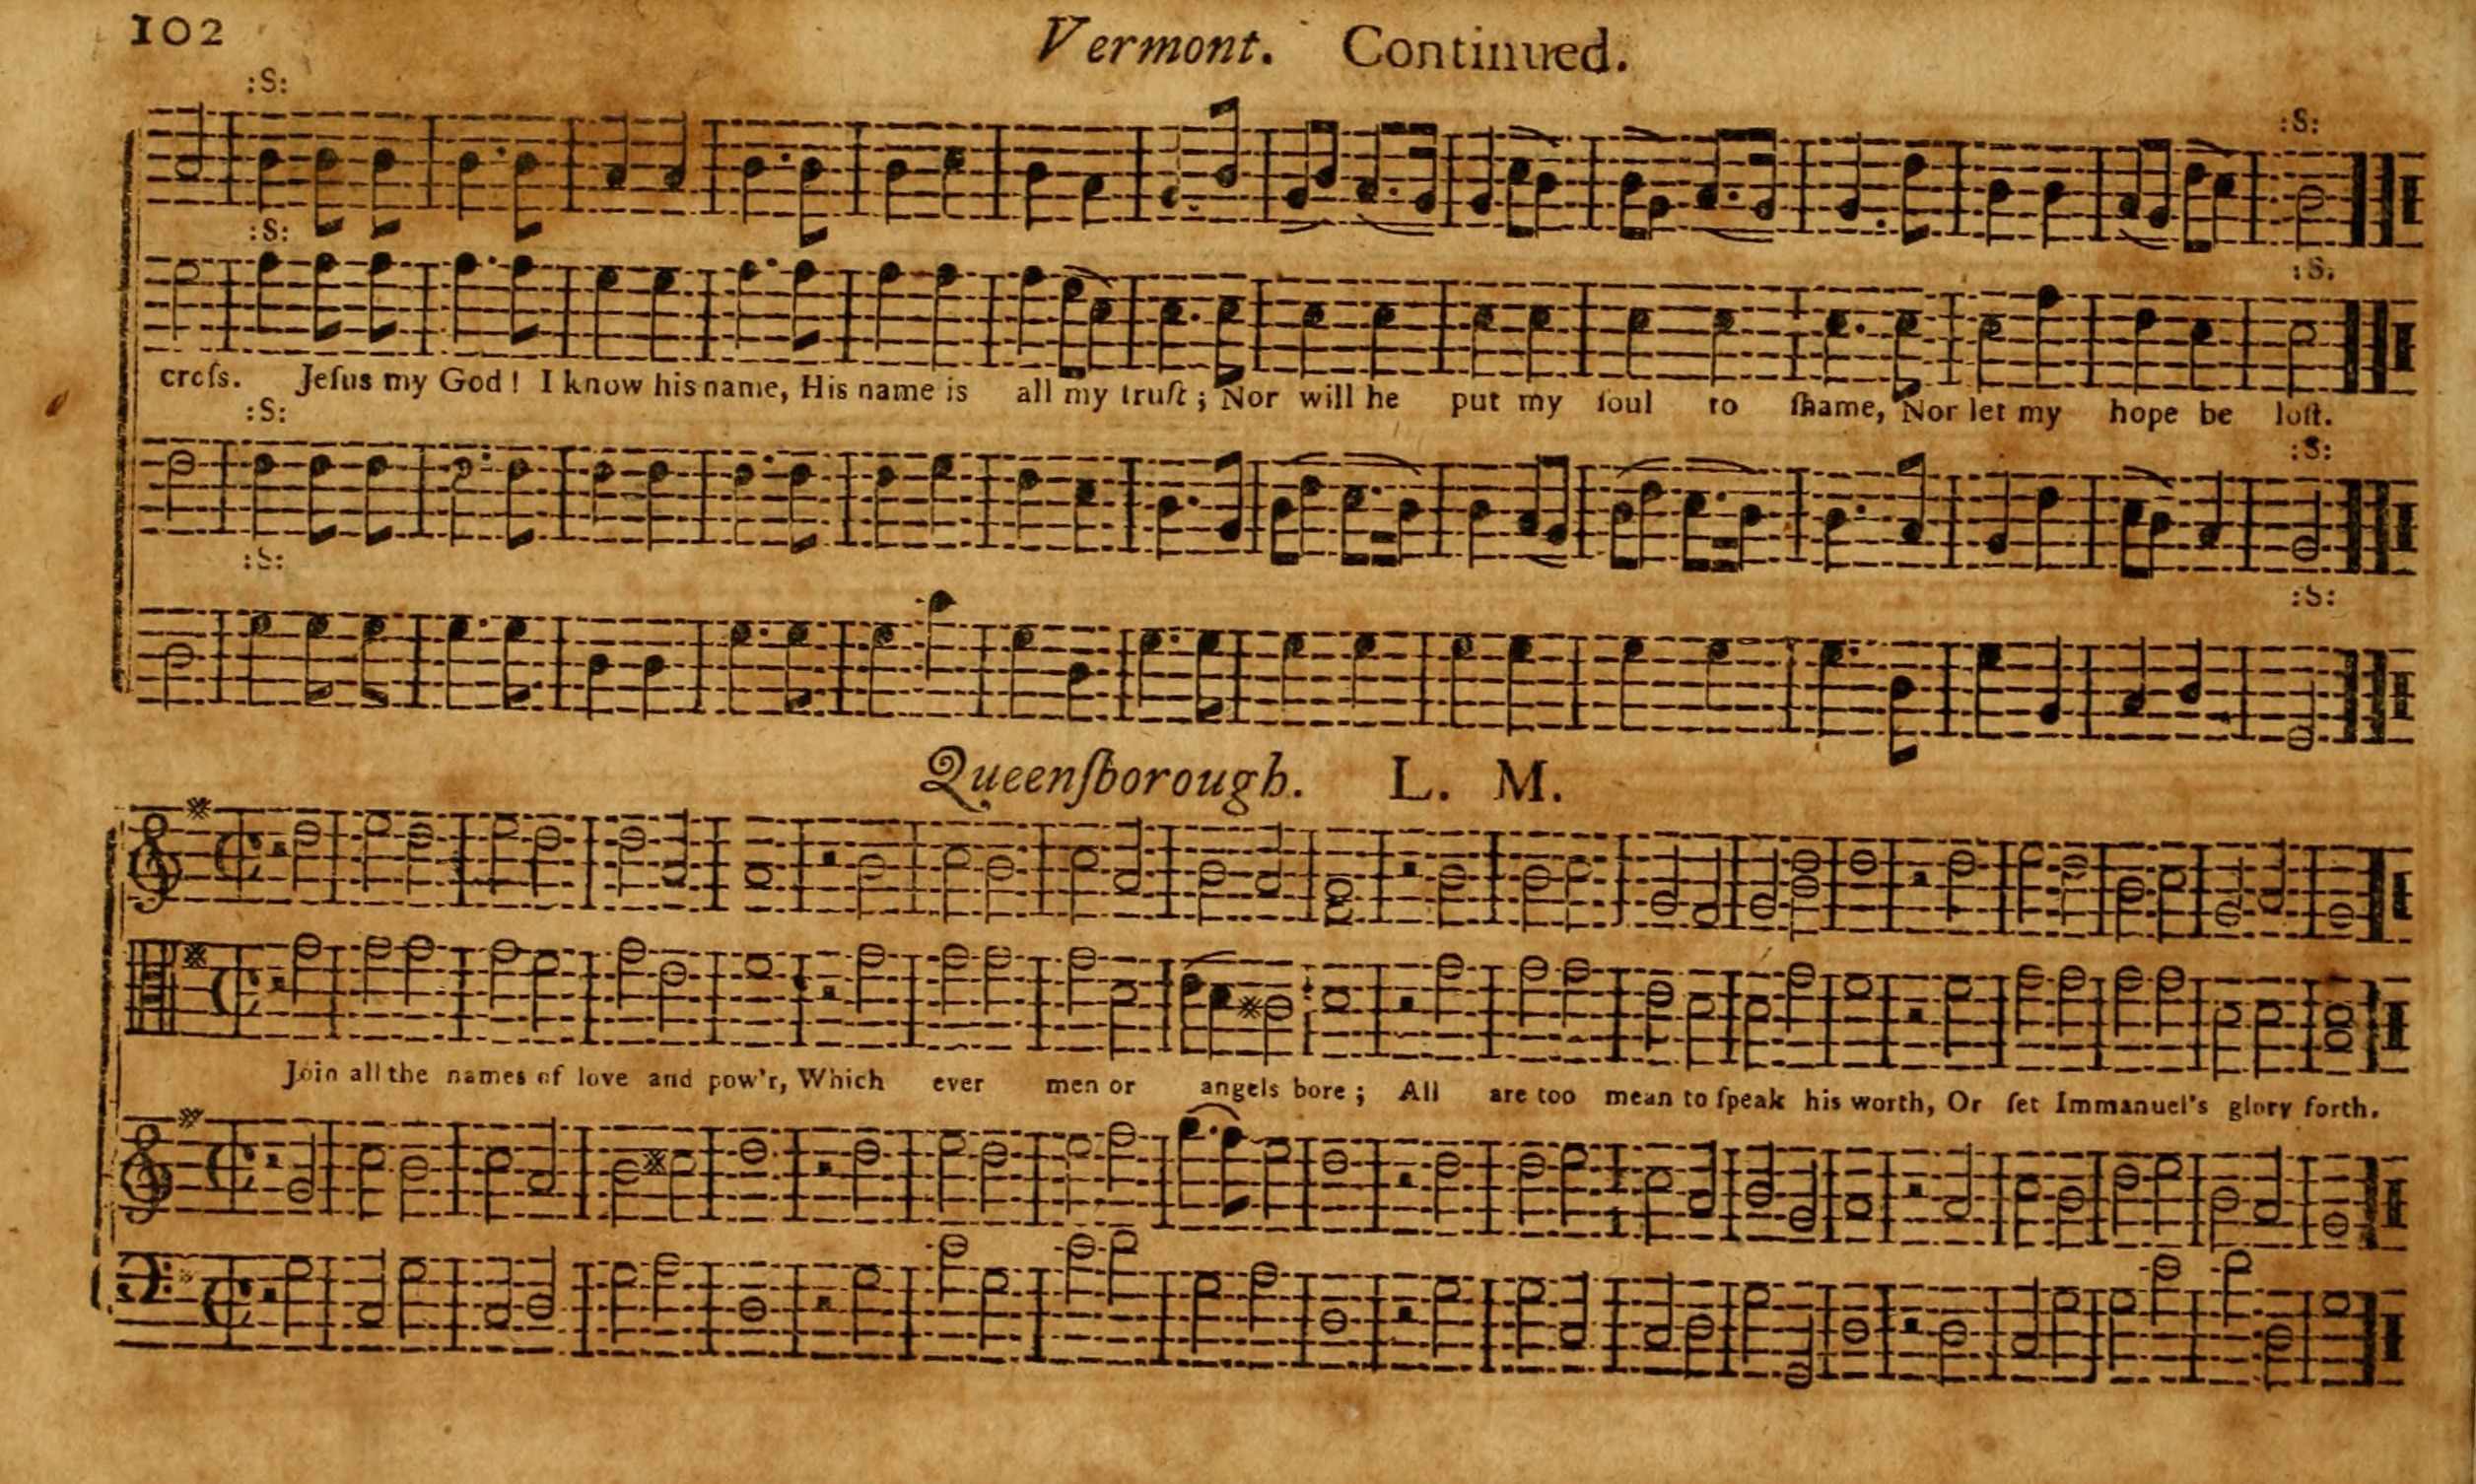 102
Vermont. Continued.
:S:
:S:
:S:
:S:
croſs. Jeſus my God! I know his name, His name is all my truſt; Nor will he put my ſoul to ſhame, Nor let my hope be loſt.
:S:
:S:
:S:
:S:
Queenſborough. L. M.
Join all the names of love and pow'r, Which ever men or angels bore; All are too mean to ſpeak his worth, Or ſet Immanuel's glory forth.